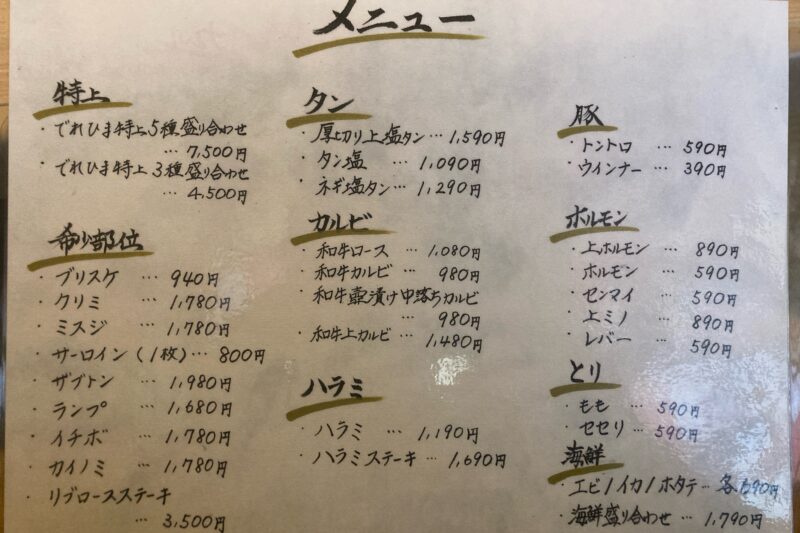 メニュー
特上
・でれひま特上5種盛り合わせ
… 7,500円
・でれひま特上3種盛り合わせ
… 4,500円
希少部位
・ブリスケ … 940円
・クリミ … 1,780円
・ミスジ … 1,780円
・サーロイン(1枚)… 800円
・ザブトン … 1,980円
・ランプ … 1,680円
・イチボ … 1,780円
・カイノミ … 1,780円
・リブロースステーキ
… 3,500円
タン
・厚切り上塩タン … 1,590円
・タン塩 … 1,090円
・ネギ塩タン … 1,290円
カルビ
・和牛ロース … 1,080円
・和牛カルビ … 980円
・和牛壺漬け中落ちカルビ
… 980円
・和牛上カルビ … 1,480円
ハラミ
・ハラミ … 1,190円
・ハラミステーキ … 1,690円
豚
・トントロ … 590円
・ウインナー … 390円
ホルモン
・上ホルモン … 890円
・ホルモン … 590円
・センマイ … 590円
・上ミノ … 890円
・レバー … 590円
とり
・もも … 590円
・セセリ … 590円
海鮮
・エビ/イカ/ホタテ … 各
・海鮮盛り合わせ … 1,790円